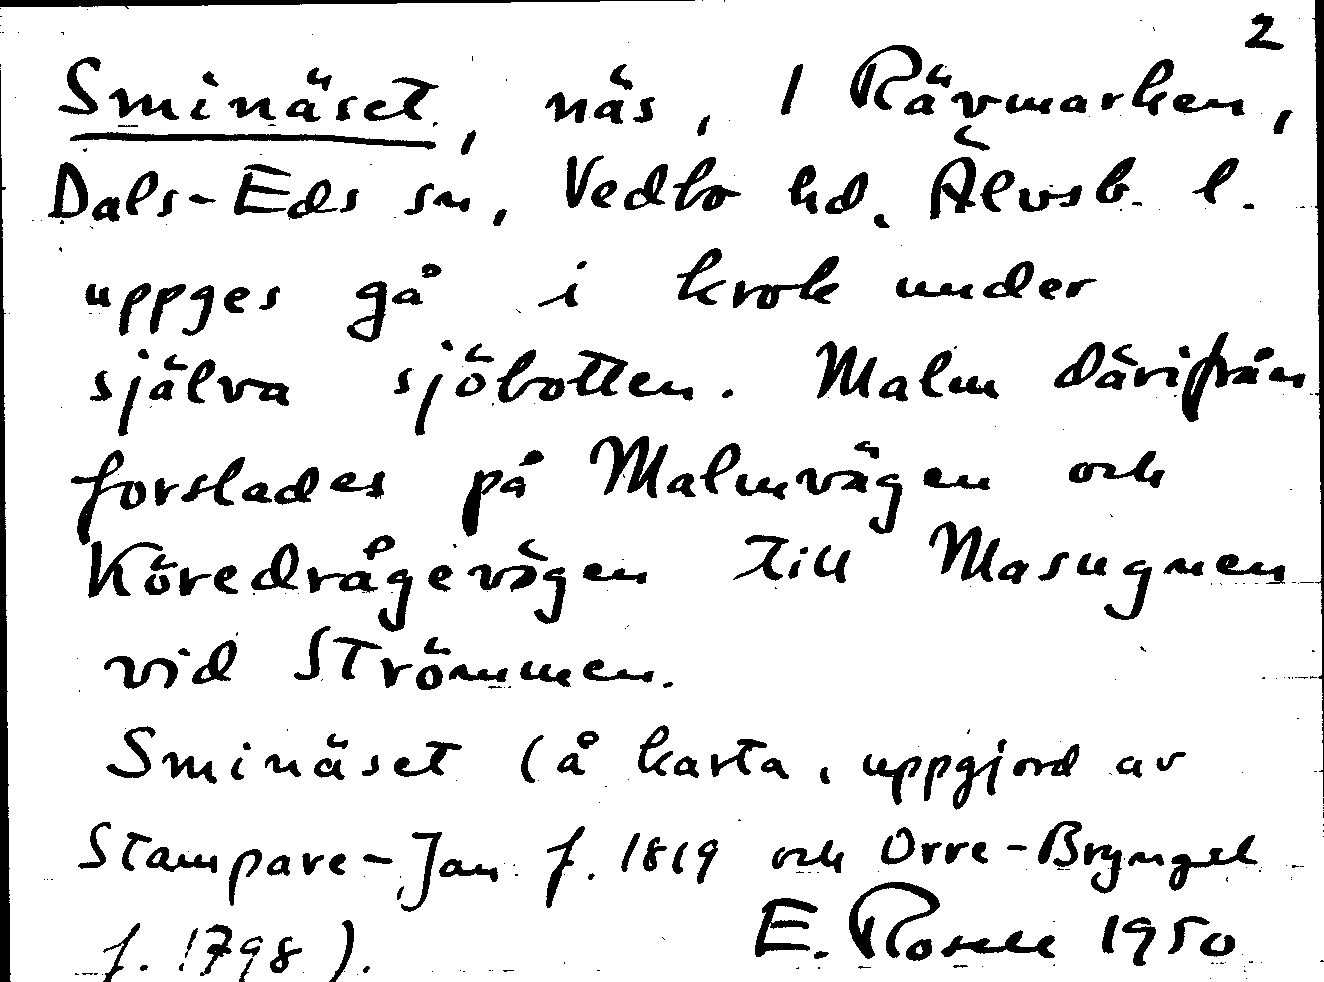 2
Sminäset, näs, 1 Rävmarken,
Dals-Eds sn, Vedbo hd, Älvsb. l.
uppges gå i krok under
själva sjöbotten. Malm därifrån
forslades på Malmvägen och
Köredrågevägen till Masugnen
vid Strömmen.
Sminäset (å karta, uppgjord av
Stampare-Jan f. 1819 och Orre-Bryngel
f. 1798). E. Rosell 1950